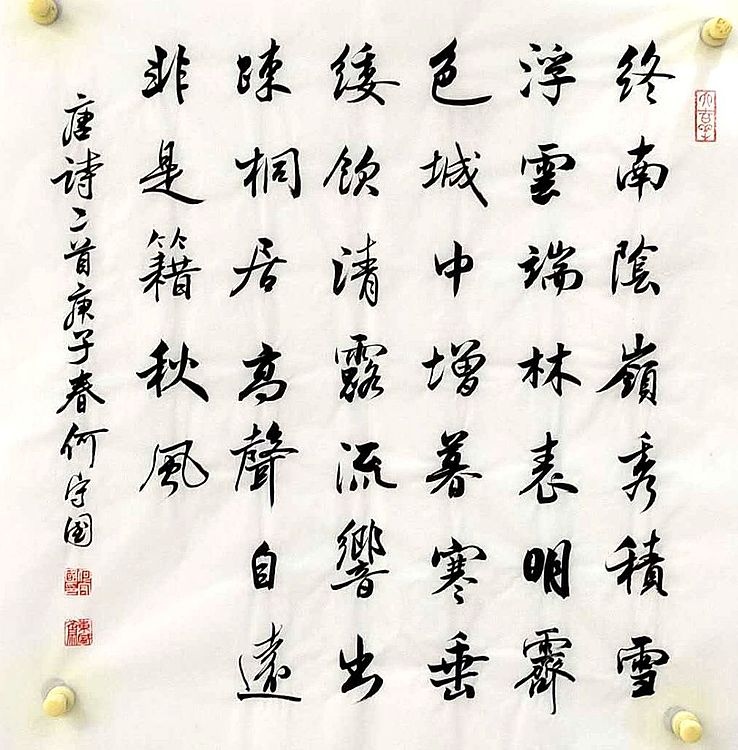 終南陰嶺秀積雪
浮雲端林表明霽
色城中增暮寒垂
緌飲清露流響出
疎桐居高聲自遠
非是籍秋風
唐詩二首庚子春何守國